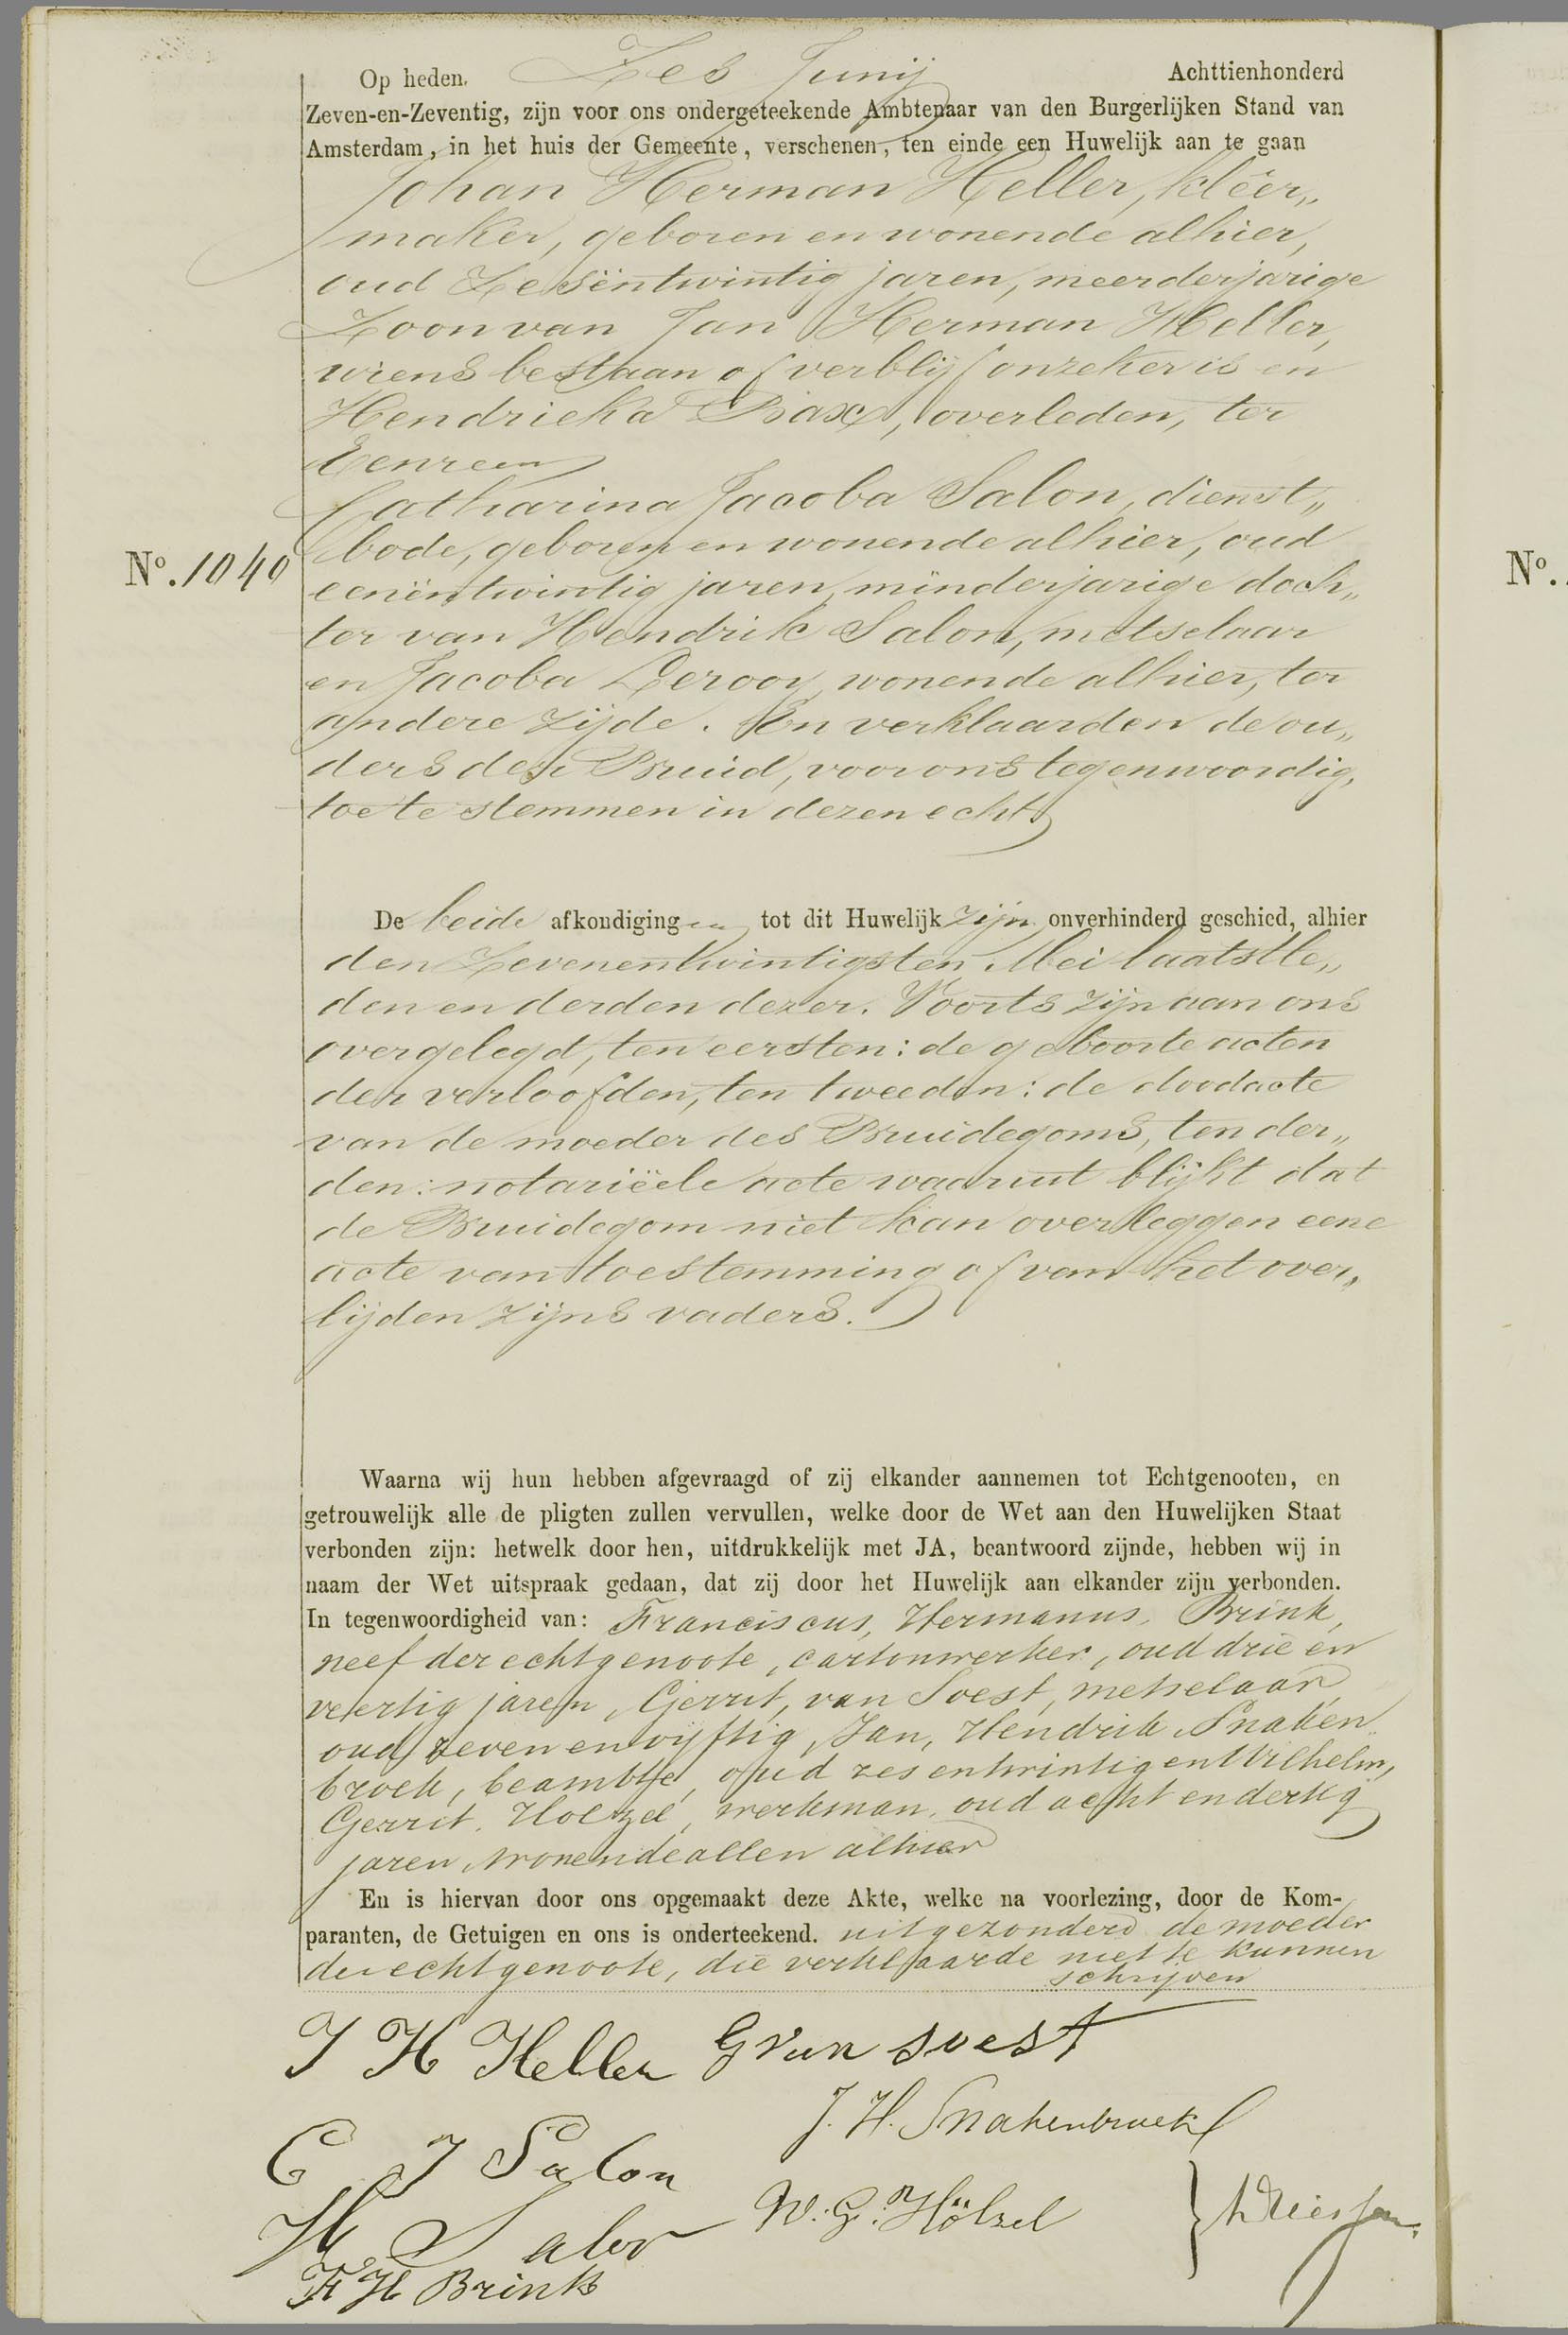 Op heden Zes Junij Achttienhonderd
Zeven-en-Zeventig, zijn voor ons ondergeteekende Ambtenaar van den Burgerlijken Stand van
Amsterdam, in het huis der Gemeente, verschenen, ten einde een Huwelijk aan te gaan
Johan Herman Heller, kléer„
maker, geboren en wonende alhier,
oud Zesëntwintig jaren, meerderjarige
Zoon van Jan Herman Heller,
wiens bestaan of verblijf onzeker is en
Hendrieka Bax, overleden, ter
Eenre en
Catharina Jacoba Salon, dienst„
bode, geboren en wonende alhier, oud
eenëntwintig jaren, minderjarige doch„
ter van Hendrik Salon, metselaar
en Jacoba Derooy, wonende alhier, ter
andere zijde. En verklaarden de ou„
ders der Bruid, voor ons tegenwoordig,
toe te stemmen in dezen echt
No. 1040
No.
De beide afkondigingen tot dit Huwelijk zijn onverhinderd geschied, alhier
den Zevenentwintigsten Mei laatstle„
den en derden dezer. Voorts zijn aan ons
overgelegd, ten eersten: de geboorte acten
der verloofden, ten tweeden: de doodacte
van de moeder des Bruidegoms, ten der„
den: notariëele acte waaruit blijkt dat
de Bruidegom niet kan overleggen eene
acte van toestemming of van het over„
lijden zijns vaders.
Waarna wij hun hebben afgevraagd of zij elkander aannemen tot Echtgenooten, en
getrouwelijk alle de pligten zullen vervullen, welke door de Wet aan den Huwelijken Staat
verbonden zijn: hetwelk door hen, uitdrukkelijk met JA, beantwoord zijnde, hebben wij in
naam der Wet uitspraak gedaan, dat zij door het Huwelijk aan elkander zijn verbonden.
In tegenwoordigheid van: Franciscus, Hermanus, Brink,
neef der echtgenoote, cartonwerker, oud drie en
veertig jaren, Gerrit, van Soest, metselaar
oud zeven en vijftig, Jan, Hendrik Snaken„
broek, beambte, oud zes entwintig en Wilhelm,
Gerrit. Hölzel, werkman, oud acht en dertig
jaren, wonende allen alhier
En is hiervan door ons opgemaakt deze Akte, welke na voorlezing, door de Kom-
paranten, de Getuigen en ons is onderteekend. uitgezonderd de moeder
der echtgenoote, die verklaarde niet te kunnen
schrijven
J H Heller G van soest
J. H. Snakenbroek
C J Salon
W. G. Hölzel
H Salon
F H Brink